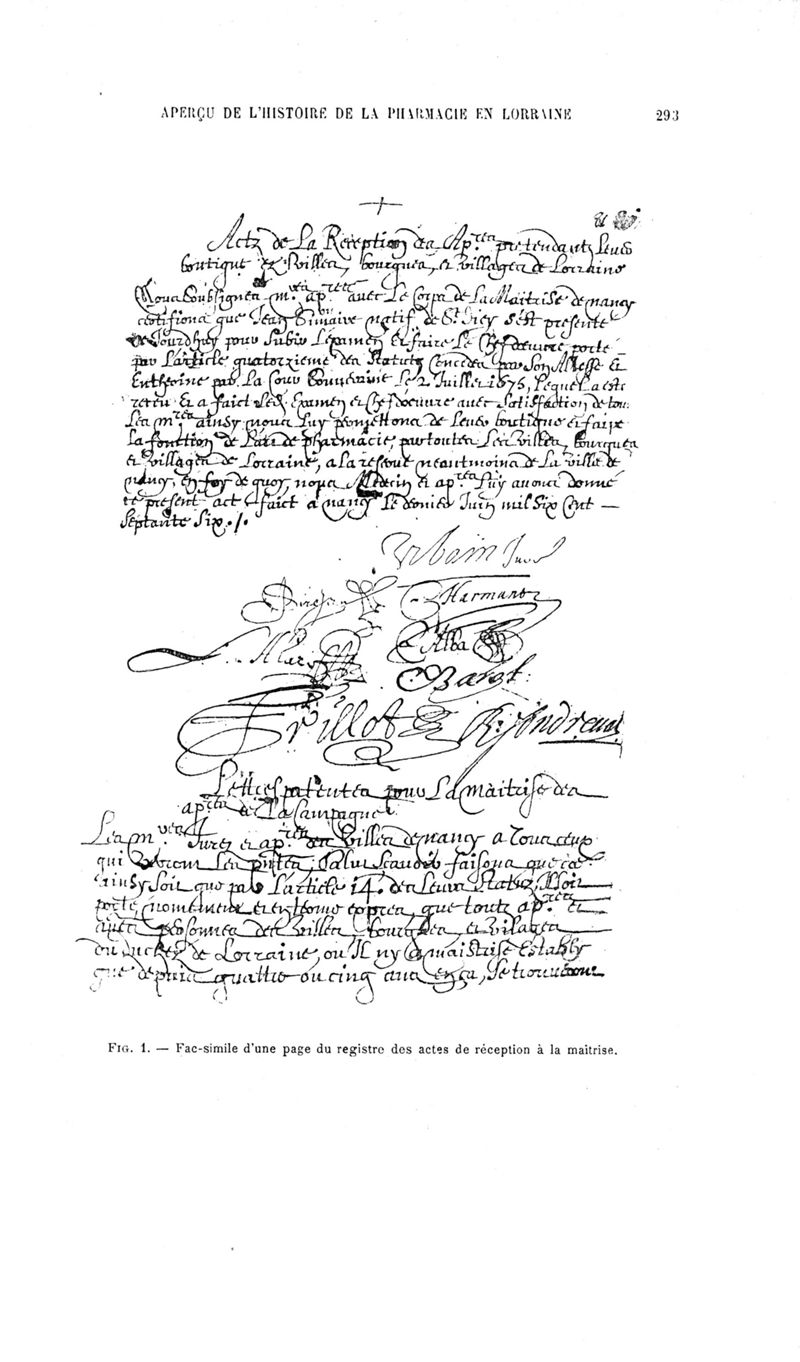 APERÇU DE L'HISTOIRE DE LA PHARMACIE EN LORRAINE 293
Actz de La Reception des Ap.res pretendantz leurs
boutique Villes, bourgues, et Villages de Lorraine
Nous Soubsignez m.res ap.res avec Le Corps de La Maitrise de nancy
certifions que Jean natif de St Diey s'est presenté
pour subir L'examen et faire Le Chefdoeuvre porté
par L'article quatorzieme des Statutz Concedez par Son Altesse et
Entherine par La Cour Souveraine Le 2 Juillet 1675, lequel a esté
receu et a faict Led. Examen et Chefdoeuvre avec Satisfaction de tous
Les m.res ainsy nous Luy permettons de Lever boutique et faire
La fonction de L'art de pharmacie, par toutes Les Villes, bourgues
et villages de Lorraine, a La reserve neantmoins de La ville de
nancy, en foy de quoy, nous Medecin et ap.res Luy avons donné
le present act faict a nancy Le dernier Juin mil Six Cent
Septante Six ./.
Urbain
Harmant
Alba
Barot
Trillot
Lettres patentes pour La maitrise des
ap.res de La Campagne
Les m.res Jurez et ap.res des Villes de nancy a Tous ceux
qui verront Les Salut Scavoir faisons que
ainsy Soit que par L'article 14. des Leurs Statuz, Il soit
porté, nomement et en termes expres, que toutz ap.res et
personnes des Villes, bourgues, et vilages
du duché de Lorraine, ou Il ny a maistrise Establys
que depuis quattre ou cinq ans ença, Se trouveront
FIG. 1. — Fac-simile d'une page du registre des actes de réception à la maitrise.